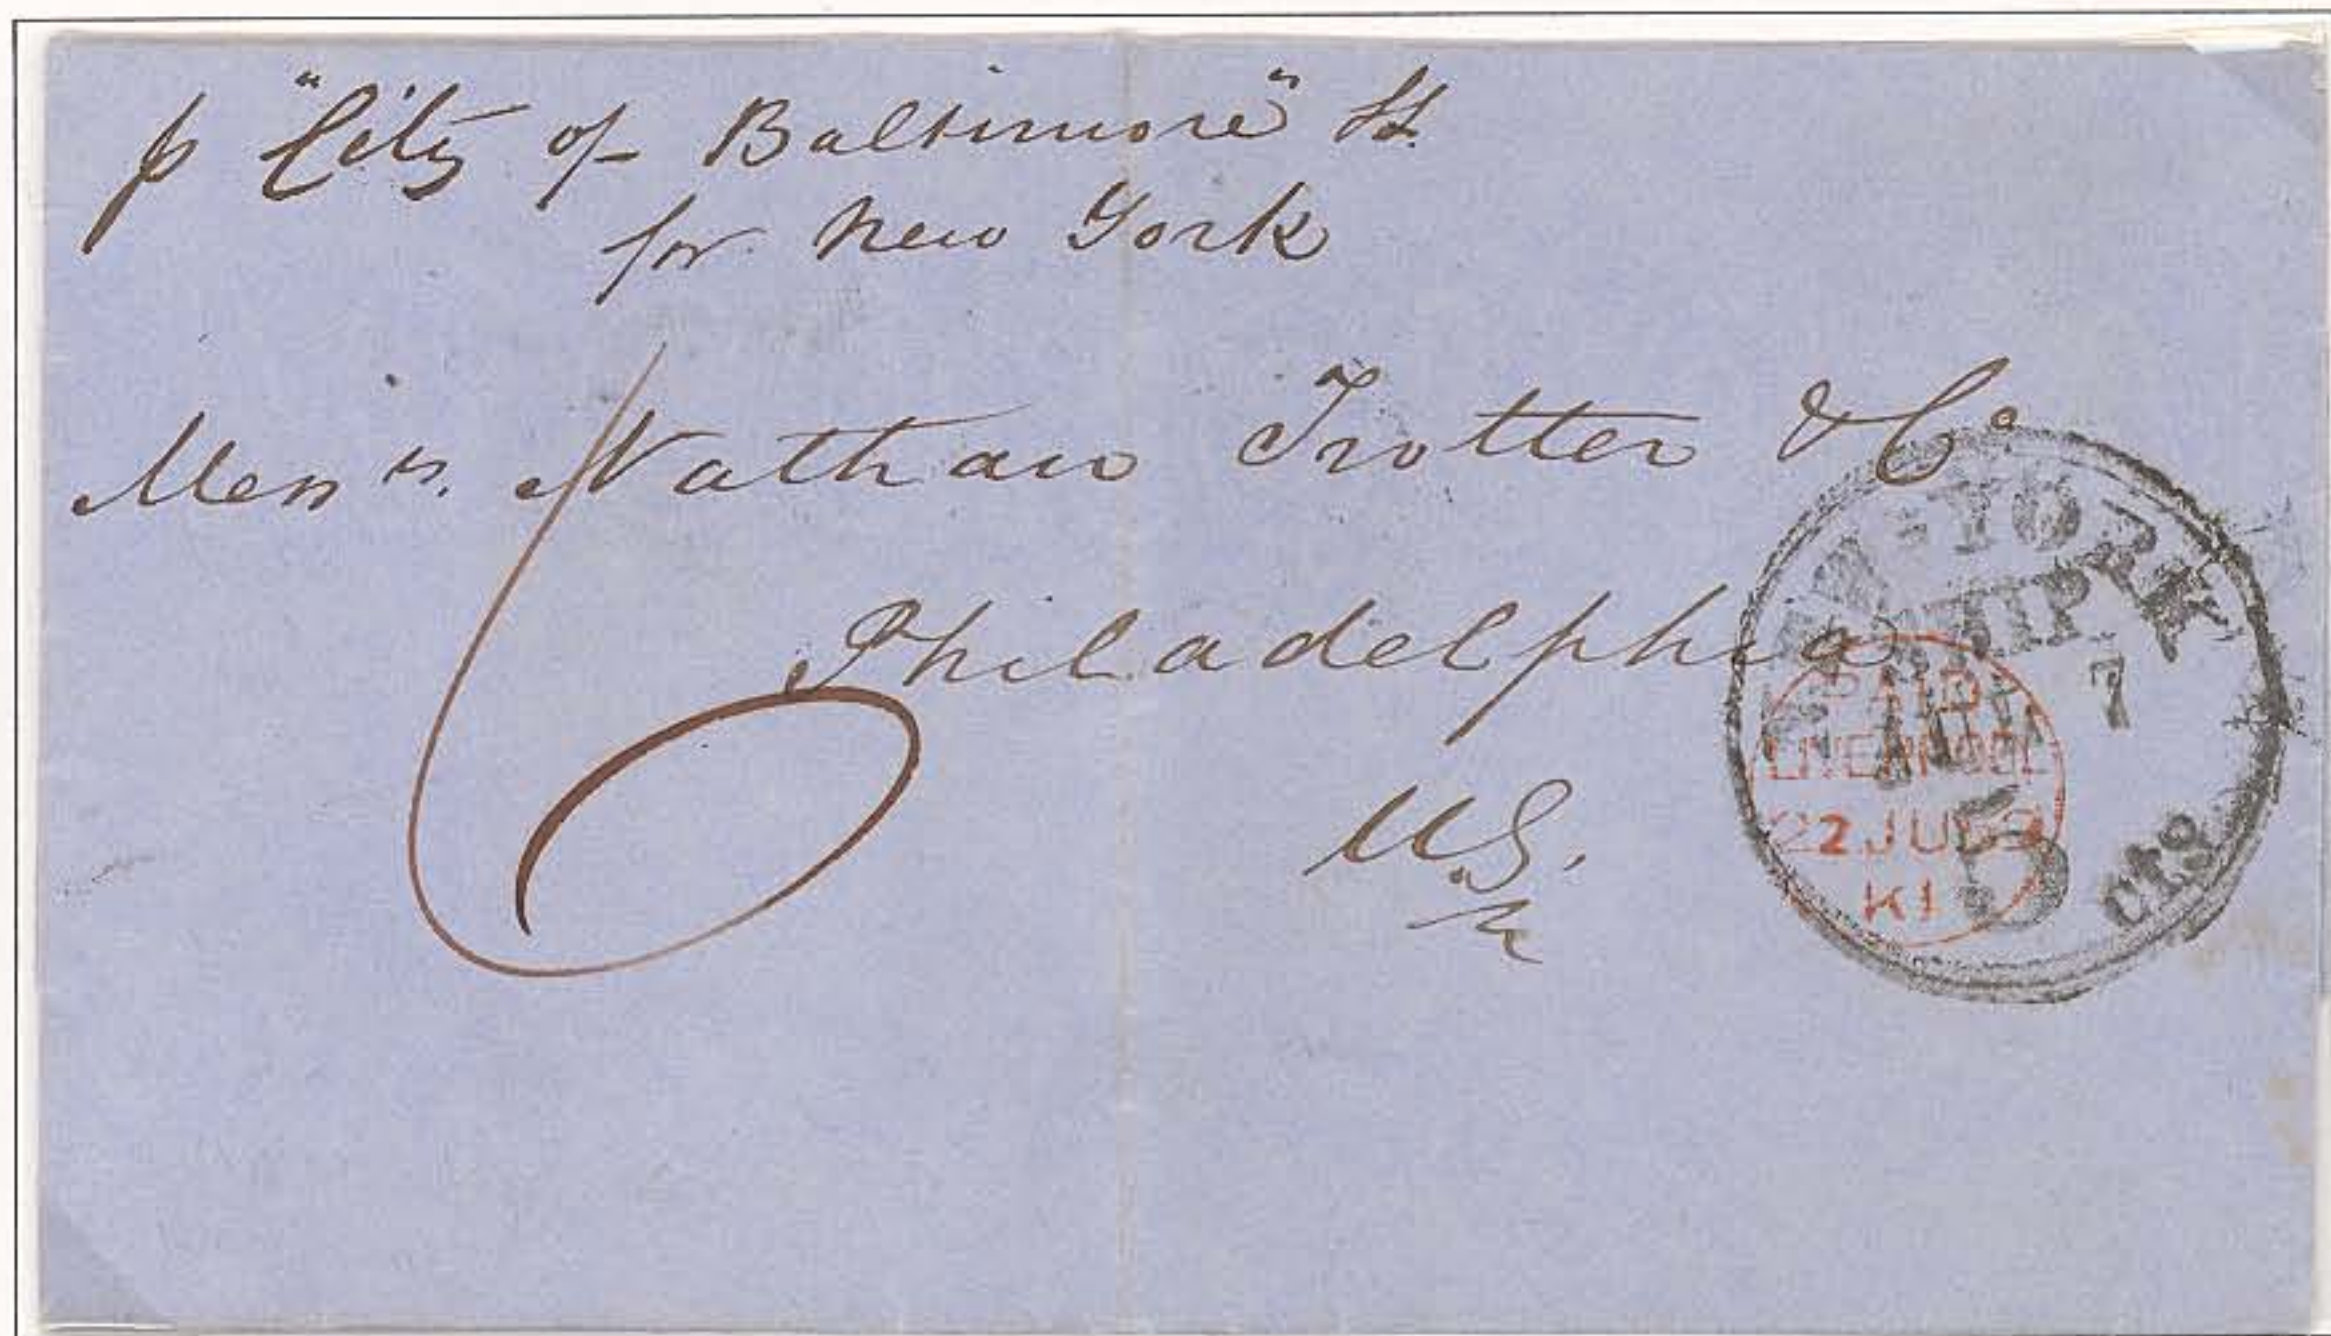 p "City of Baltimore" St.
for New York
Messrs. Nathan Trotter & Co
Philadelphia
U.S.
6
NEW-YORK
SHIP
7
5 cts
PAID
LIVERPOOL
22 JU 59
K1